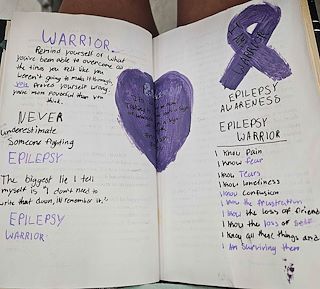 WARRIOR
Remind yourself of what
you've been able to overcome all
the times you felt like you
weren't going to make it through
you proved yourself wrong,
you're more powerful than you
think.
NEVER
underestimate
Someone fighting
EPILEPSY
The biggest lie I tell
myself is "I don't need to
write that down, Ill remember it."
EPILEPSY
WARRIOR
I AM A
WARRIOR
EPILEPSY
AWARENESS
EPILEPSY
WARRIOR
I Know Pain
I Know fear
I Know Tears
I Know loneliness
I Know Confusion
I Know the frustration
I Know the loss of friends
I Know the loss of self
I Know all these things and
I Am Surviving them